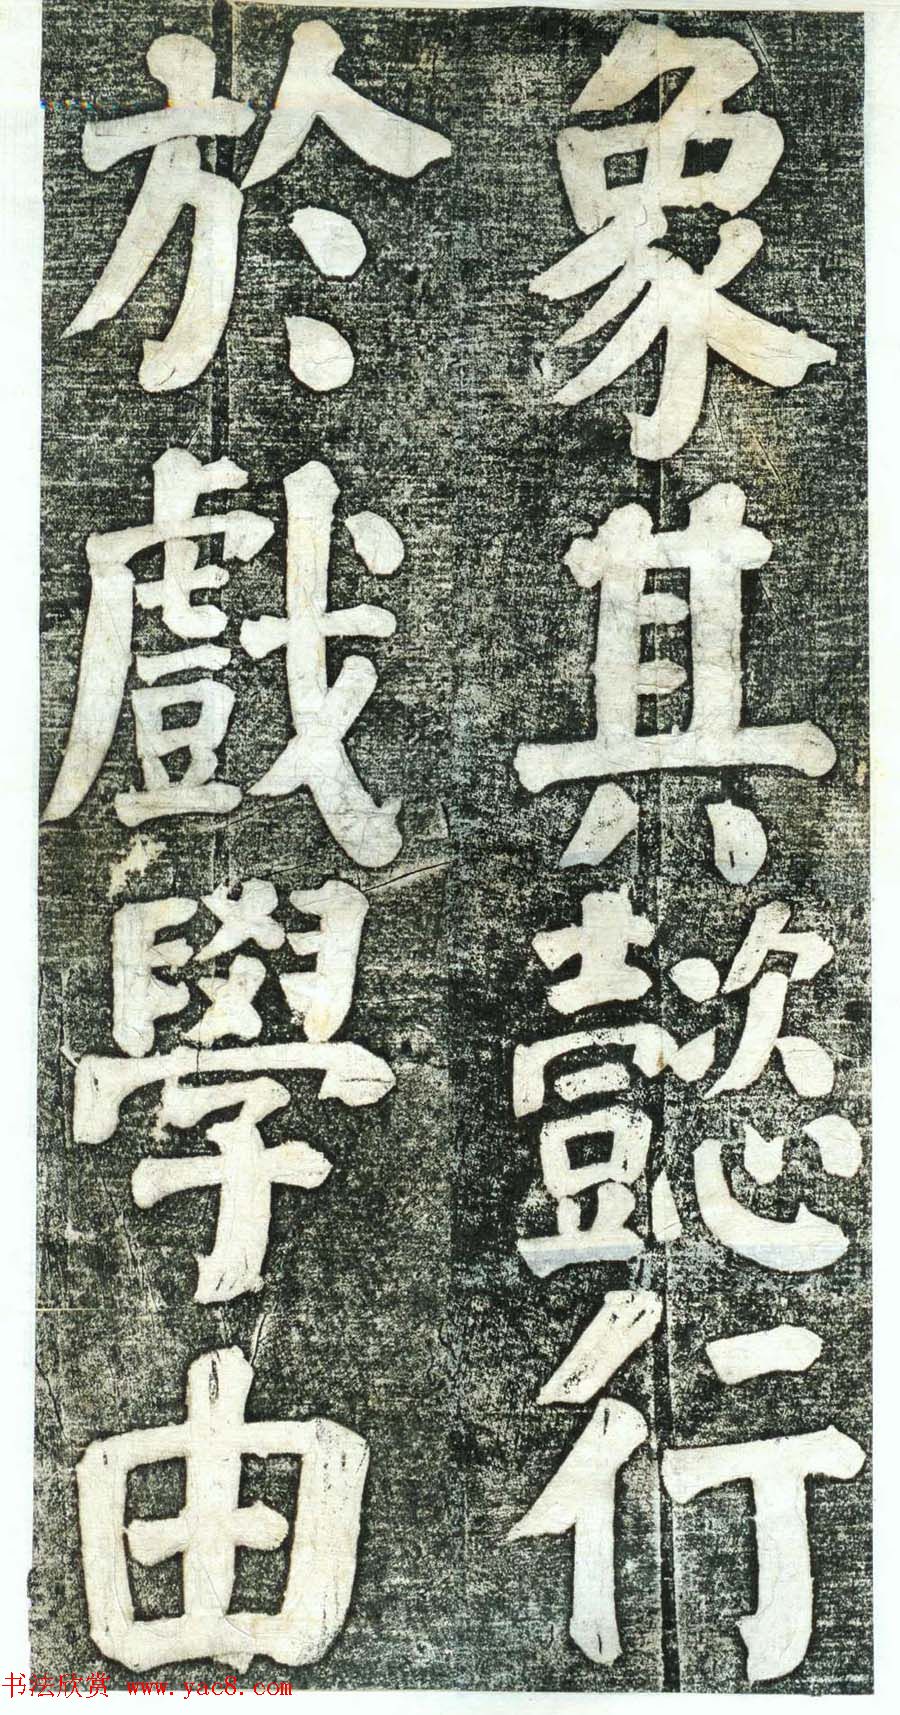 象其懿行
於戲學由
书法欣赏 www.yac8.com